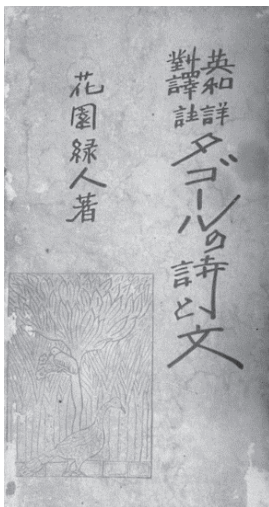 英和詳
對譯註
タゴールの詩と文
花園緑人著